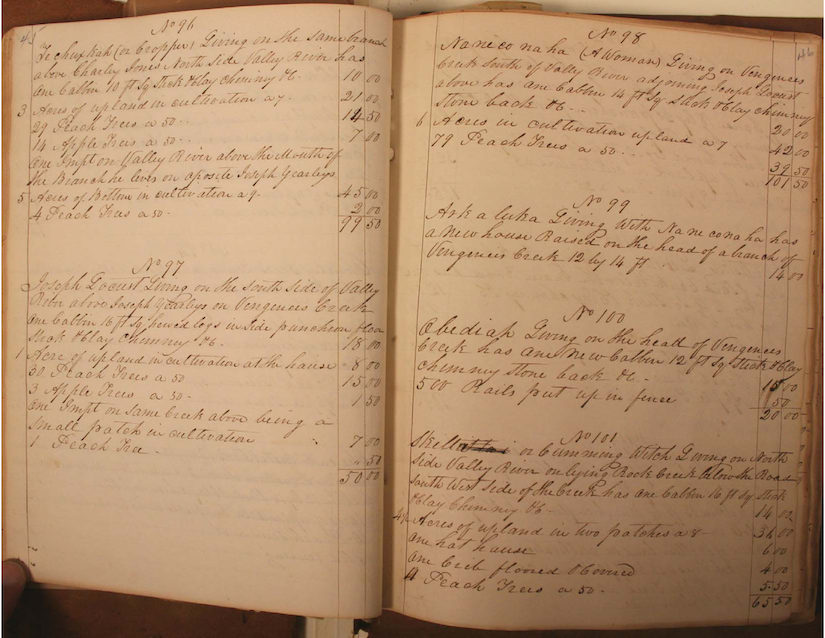 45
No 96
Techuxkah (or Cropper) Living on the same branch
above Charley Jones North Side Valley River has
one Cabbin 13 ft Sq Stick & Clay chimney &c. 10 00
3 Acres of upland in cultivation a 7. 21 00
29 Peach Trees a 50. 14 50
14 Apple Trees a 50. 7 00
one Impt on Valley River above the Mouth of
the Branch he lives on oposite Joseph Gearleys
5 Acres of Bottom in cultivation a 9. 45 00
4 Peach Trees a 50. 2 00
99 50
No 97
Joseph Locust Living on the South Side of Valley
River above Joseph Gearleys on Vengences Creek
one Cabbin 16 ft Sq hewed logs in Side puncheon floor
Stick & Clay chimney &c. 18 00
1 Acre of upland in cultivation at the house 8 00
30 Peach Trees a 50 15 00
3 Apple Trees a 50. 1 50
one Impt on Same Creek above being a
Small patch in cultivation 7 00
1 Peach Tree. 50
50 00
46
No 98
Naneconaha (A Woman) Living on Vengences
Creek South of Valley River adjoining Joseph Locust
above has one Cabbin 14 ft Sq Stick & Clay chimney
Stone back &c. 20 00
6 Acres in cultivation upland a 7 42 00
79 Peach Trees a 50. 39 50
101 50
No 99
Arkaluka Living With Naneconaha has
a New house Raised on the head of a branch of
Vengences Creek 12 by 14 ft 14 00
No 100
Obediah Living on the head of Vengences
Creek has one New Cabbin 12 ft Sq Stick & Clay
chimney Stone back &c. 15 00
500 Rails put up in fence 50
20 00
No 101
or Cumming Witch Living on North
Side Valley River on lying Rock Creek below the Road
South West Side of the Creek has one Cabbin 16 ft Sq Stick
& Clay Chimney &c. 14 00
Acres of upland in two patches a 8 36 00
one hot house 6 00
one Crib floored & Covered 4 00
Peach Trees a 50. 5 50
65 50